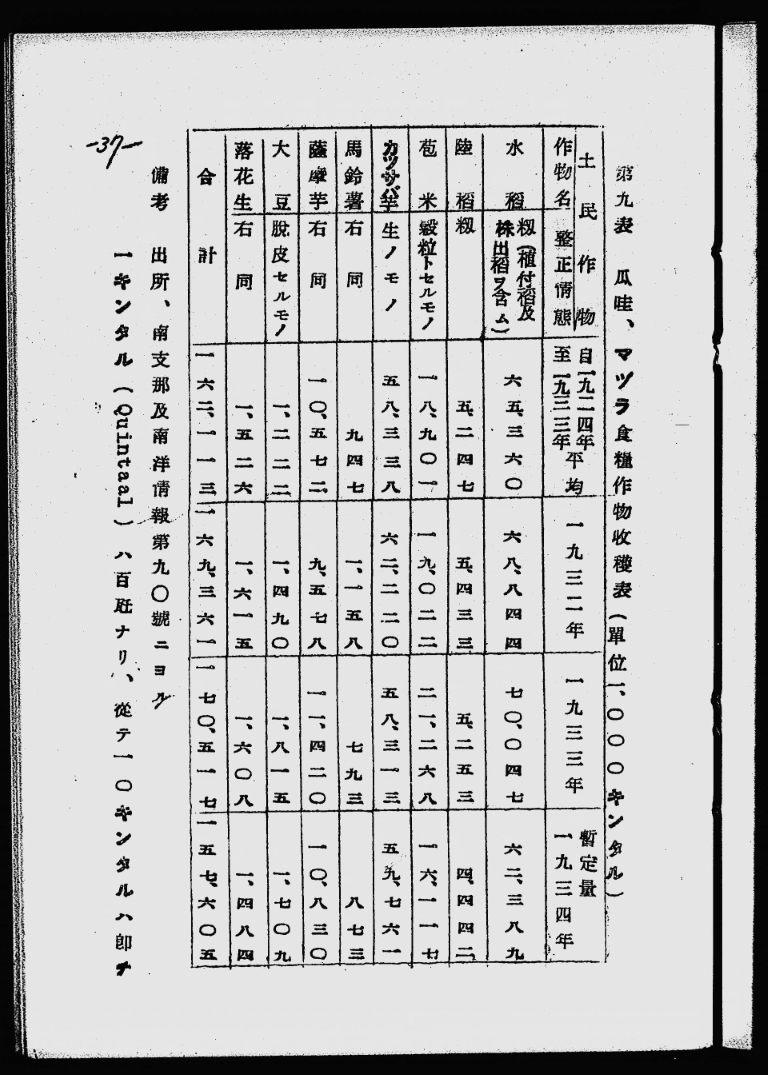 第九表 瓜哇、マヅラ食糧作物收穫表(單位一、〇〇〇キンタル)
土民作物 自一九二四年 平均 一九三二年 一九三三年 暫定量
作物名 整正情態 至一九三三年 一九三四年
水稻 籾(植付稻及 六五、三六〇 六八、八四四 七〇、〇四七 六二、三八九
株出稻ヲ含ム)
陸稻 籾 五、二四七 五、四三三 五、二五三 四、四四二
苞米 穀粒トセルモノ 一八、九〇一 一九、〇二二 二一、二六八 一六、一一七
カツサバ芋 生ノモノ 五八、三三八 六二、二二〇 五八、三一三 五九、七六一
馬鈴薯 右同 九四七 一、一五八 七九三 八七三
薩摩芋 右同 一〇、五七二 九、五七八 一一、四二〇 一〇、八三〇
大豆 脱皮セルモノ 一、二二二 一、四九〇 一、八一五 一、七〇九
落花生 右同 一、五二六 一、六一五 一、六〇八 一、四八四
合計 一六二、一一三 一六九、三六一 一七〇、五一七 一五七、六〇五
備考 出所、南支那及南洋情報第九〇號ニヨル
一キンタル(Quintaal)ハ百瓩ナリ、從テ一〇キンタルハ卽チ
-37-